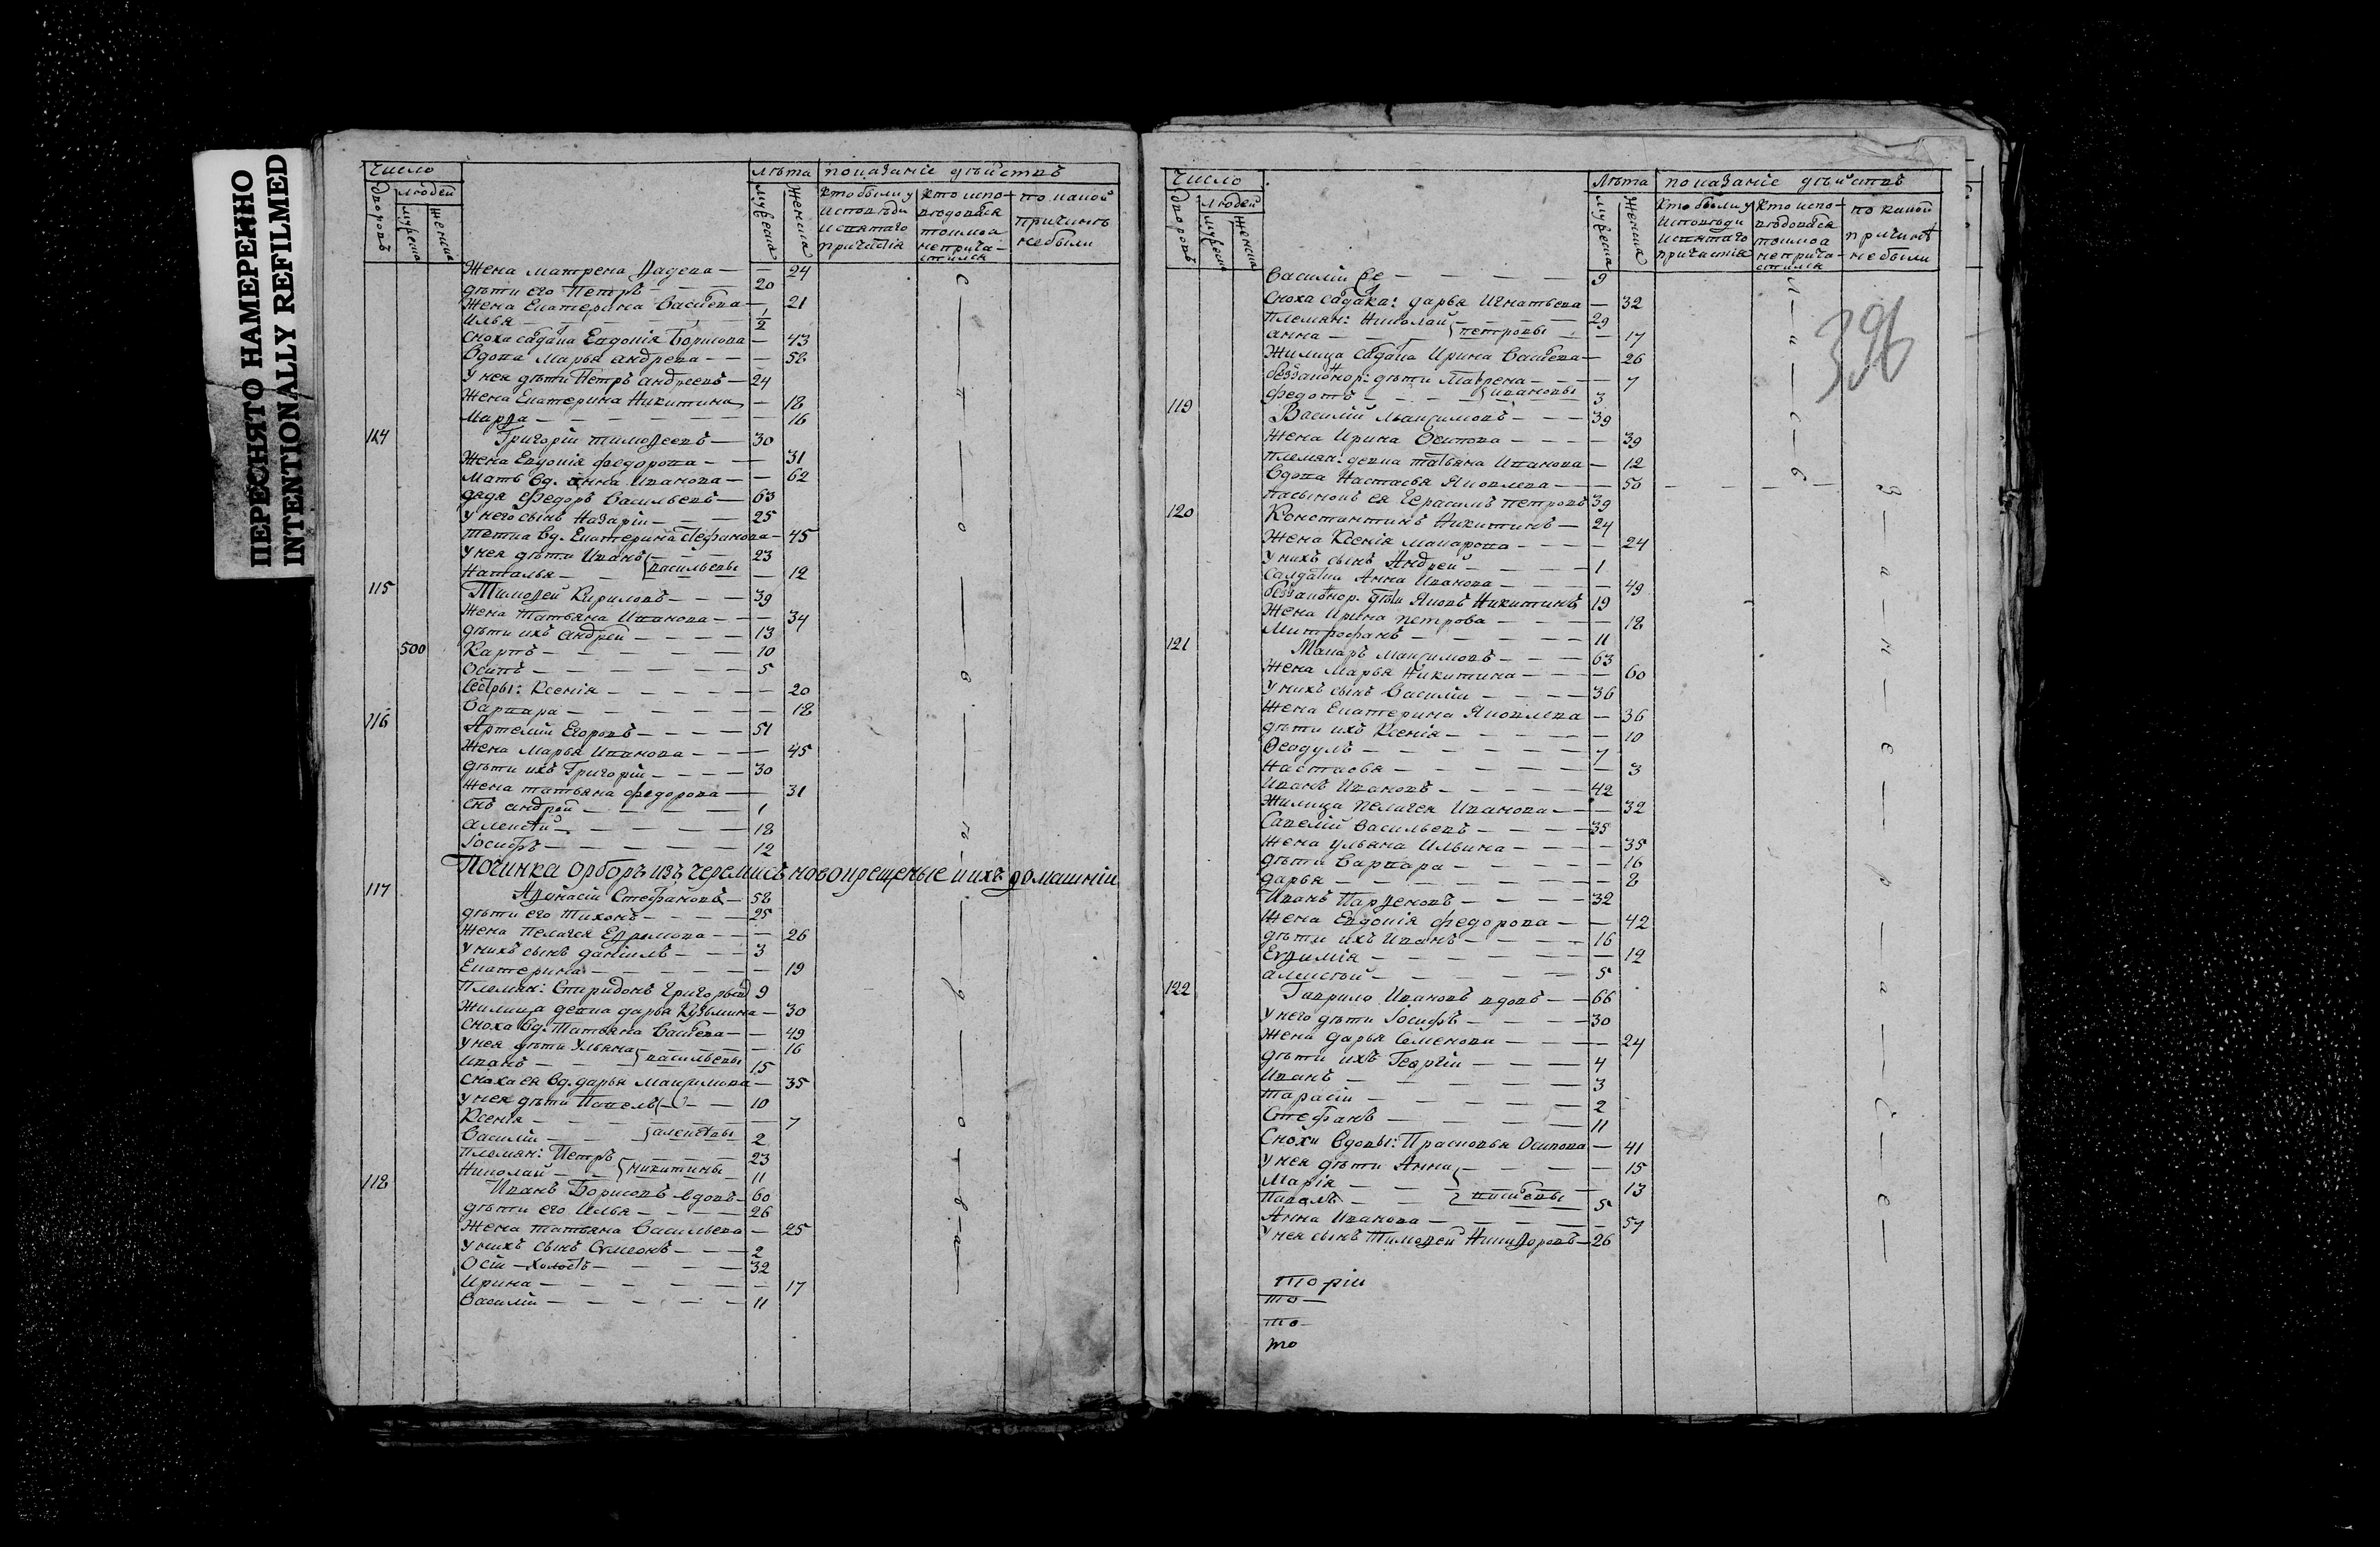 ПЕРЕСНЯТО НАМЕРЕННО
INTENTIONALLY REFILMED
Число
Дворовъ
людей
мужеска
женска
лѣта
мужеска
женска
показаніе дѣйствъ
кто были у исповѣди и святаго причастія
кто испо-
вѣдовался
токмо а
не прича-
стился
по какой
причинѣ
не были
Жена Матрена Фадѣева — — 24
дѣти его Петръ — 20
Жена Екатерина Васильева — 21
Илья — 1/2
Сноха салдатка Евдокія Борисова — 43
Вдова Марья андреева — — 58
У нея дѣти Петръ андреевъ — 24
Жена Екатерина Никитина — 18
Марѳа — 16
114 Григорій тимоѳеевъ — 30
Жена Евдокія федорова — 31
Мать вд. анна Иванова — 62
дядя Федоръ Васильевъ — 63
У него сынъ Назарій — 25
тетка вд. Екатерина Стефанова — 45
У нея дѣти Иванъ — 23
васильевы
Наталья — 12
115 Тимоѳей Кириловъ — 39
Жена Татьяна Иванова — 34
дѣти ихъ андрей — 13
500 Карпъ — 10
Осипъ — 5
сестры: Ксенія — 20
Варвара — 18
116 Артемій Егоровъ — 51
Жена Марья Иванова — 45
дѣти ихъ Григорій — 30
Жена татьяна федорова — 31
снъ андрей — 1
алексѣй — 18
Іосифъ — 12
Починка Орборъ изъ черемисъ новокрещеные и ихъ домашніи
117 Аѳонасій Стефановъ — 58
дѣти его Тихонъ — 25
Жена Пелагея Ефремова — 26
У нихъ сынъ даніилъ — 3
Екатерина — 19
Племян: Спиридонъ Григорьевъ 9
Жилица девка дарья Кузьмина — 30
Сноха вд. Татьяна Васильева — 49
У нея дѣти Ульяна — 16
васильевы
Иванъ — 15
Сноха ея вд. дарья Максимова — 35
У нея дѣти Павелъ — 10
Ксенія — 7
алексѣевы
Василій — 2
Племян: Петръ — 23
никитины
Николай — 11
118 Иванъ Борисовъ вдовъ — 60
дѣти его Илья — 26
Жена татьяна Васильева — 25
У нихъ сынъ Сѵмеонъ — 2
Осій — холостъ — 32
Ирина — 17
Василій — 11
Число
Дворовъ
людей
мужеска
женска
Лѣта
мужеска
женска
показаніе дѣйствъ
кто были у
исповѣди
и святаго
причастія
кто испо-
вѣдовался
токмо а
не прича-
стился
по какой
причинѣ
не были
396
Василій — 9
Сноха салдатка: дарья Игнатьева — 32
Племян: Николай — 29
петровы
анна — 17
Жилица салдатка Ирина Васильева — 26
беззаконнор: дѣти Маврена — 7
ивановы
федотъ — 3
119 Василій Максимовъ — 39
Жена Ирина Осипова — 39
племян: девка татьяна Иванова — 12
Вдова Настасья Яковлева — 50
пасынокъ ея Герасимъ петровъ 39
120 Константинъ Никитинъ — 24
Жена Ксенія Макарова — 24
У нихъ сынъ Андрей — 1
Салдатка Анна Иванова — 49
беззаконнор. дѣти Яковъ Никитинъ 19
Жена Ирина петрова — 18
Митрофанъ — 11
121 Макаръ Максимовъ — 63
Жена Марья Никитина — 60
У нихъ сынъ Василій — 36
Жена Екатерина Яковлева — 36
дѣти ихъ Ксенія — 10
Ѳеодулъ — 7
Настасья — 3
Иванъ Ивановъ — 42
Жилица Пелагея Иванова — 32
Савелій Васильевъ — 35
Жена ульяна Ильина — 35
дѣти Варвара — 16
дарья — 8
Иванъ Парѳеновъ — 32
Жена Евдокія федорова — 42
дѣти ихъ Иванъ — 16
Евѳимія — 12
алексѣй — 5
122 Гаврило Ивановъ вдовъ — 66
У него дѣти Іосифъ — 30
Жена дарья Семенова — 24
дѣти ихъ Георгій — 4
Иванъ — 3
тарасій — 2
Стефанъ — 11
Снохи вдовы: Прасковья Осипова — 41
У нея дѣти Анна — 15
Марія — 13
Павелъ — 5
Анна Иванова — 57
У нея сынъ Тимоѳей Никифоровъ — 26
торіи
то —
то —
то